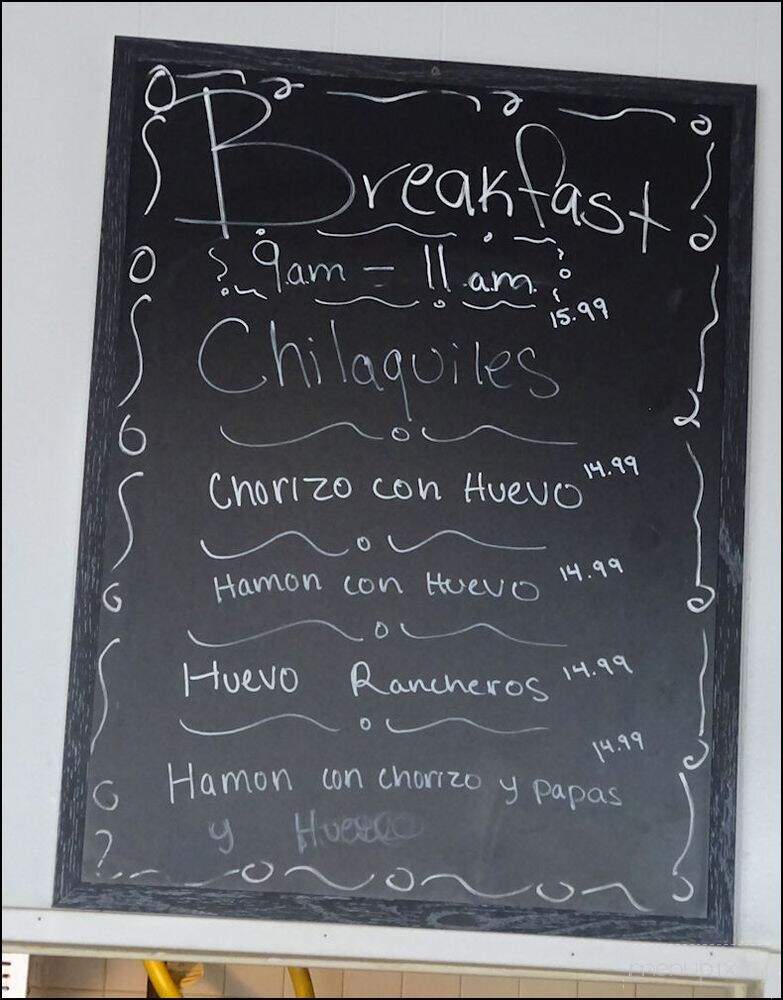 Breakfast
9a.m - 11 a.m.
15.99
Chilaquiles
Chorizo con Huevo 14.99
Hamon con Huevo 14.99
Huevo Rancheros 14.99
14.99
Hamon con chorizo y papas
y